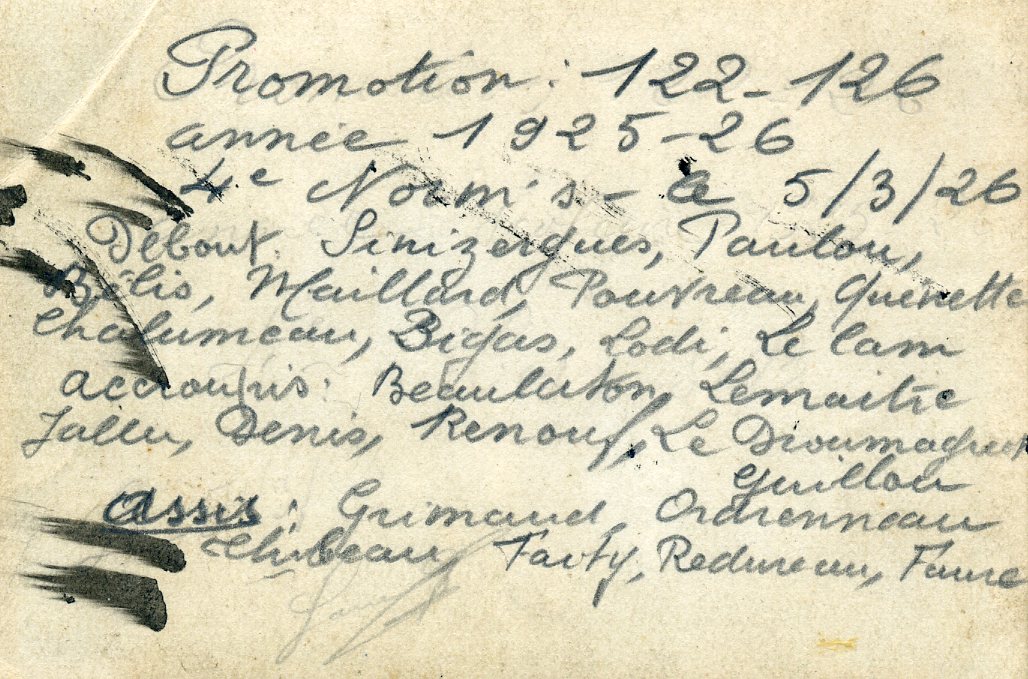 Promotion : 122-126
année 1925-26
4e Norm's - a 5/3/26
Débout. Sinizergues, Paulou,
Bélis, Maillard, Pouvreau, Quenette
Chalumeau, Bigas, Lodi, Le Cam
accroupis : Beaulaton, Lemaitre
Jallu, Denis, Renouf, Le
Guillou
assis : Grimaud, Ordrenneau
Thibeau, Farty, Redureau, Faure